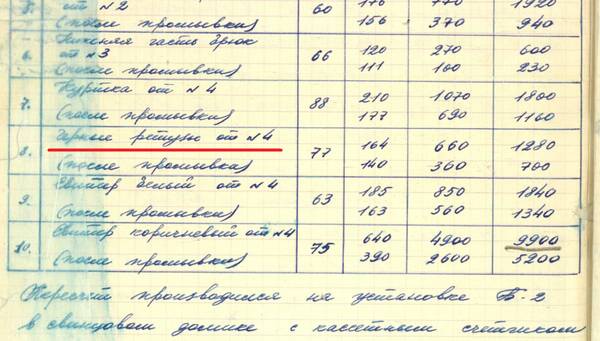 5. от №2 60 176 770 1920
(после промывки) 156 370 940
6. Нижняя часть брюк от №3 66 120 270 600
(после промывки) 111 160 230
7. Куртка от №4 88 210 1070 1800
(после промывки) 177 690 1160
8. Черные рейтузы от №4 77 164 660 1280
(после промывки) 140 360 700
9. Свитер белый от №4 63 185 850 1840
(после промывки) 163 560 1340
10. Свитер коричневый от №4 75 640 4900 9900
(после промывки) 390 2600 5200
Пересчёт производился на установке Б-2
в свинцовом домике с кассетным счётчиком